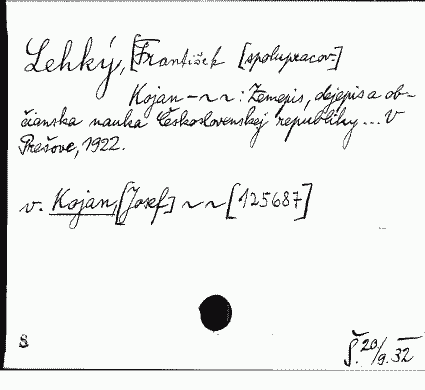 Lehký, [František [spolupracov.]
Kojan – ~ ~ : Zemepis, dejepis a ob-
čianska nauka Československej republiky ... V
Prešove, 1922.
v. Kojan, [Josef] ~ ~ [125687]
8
Š. 20/9. 32